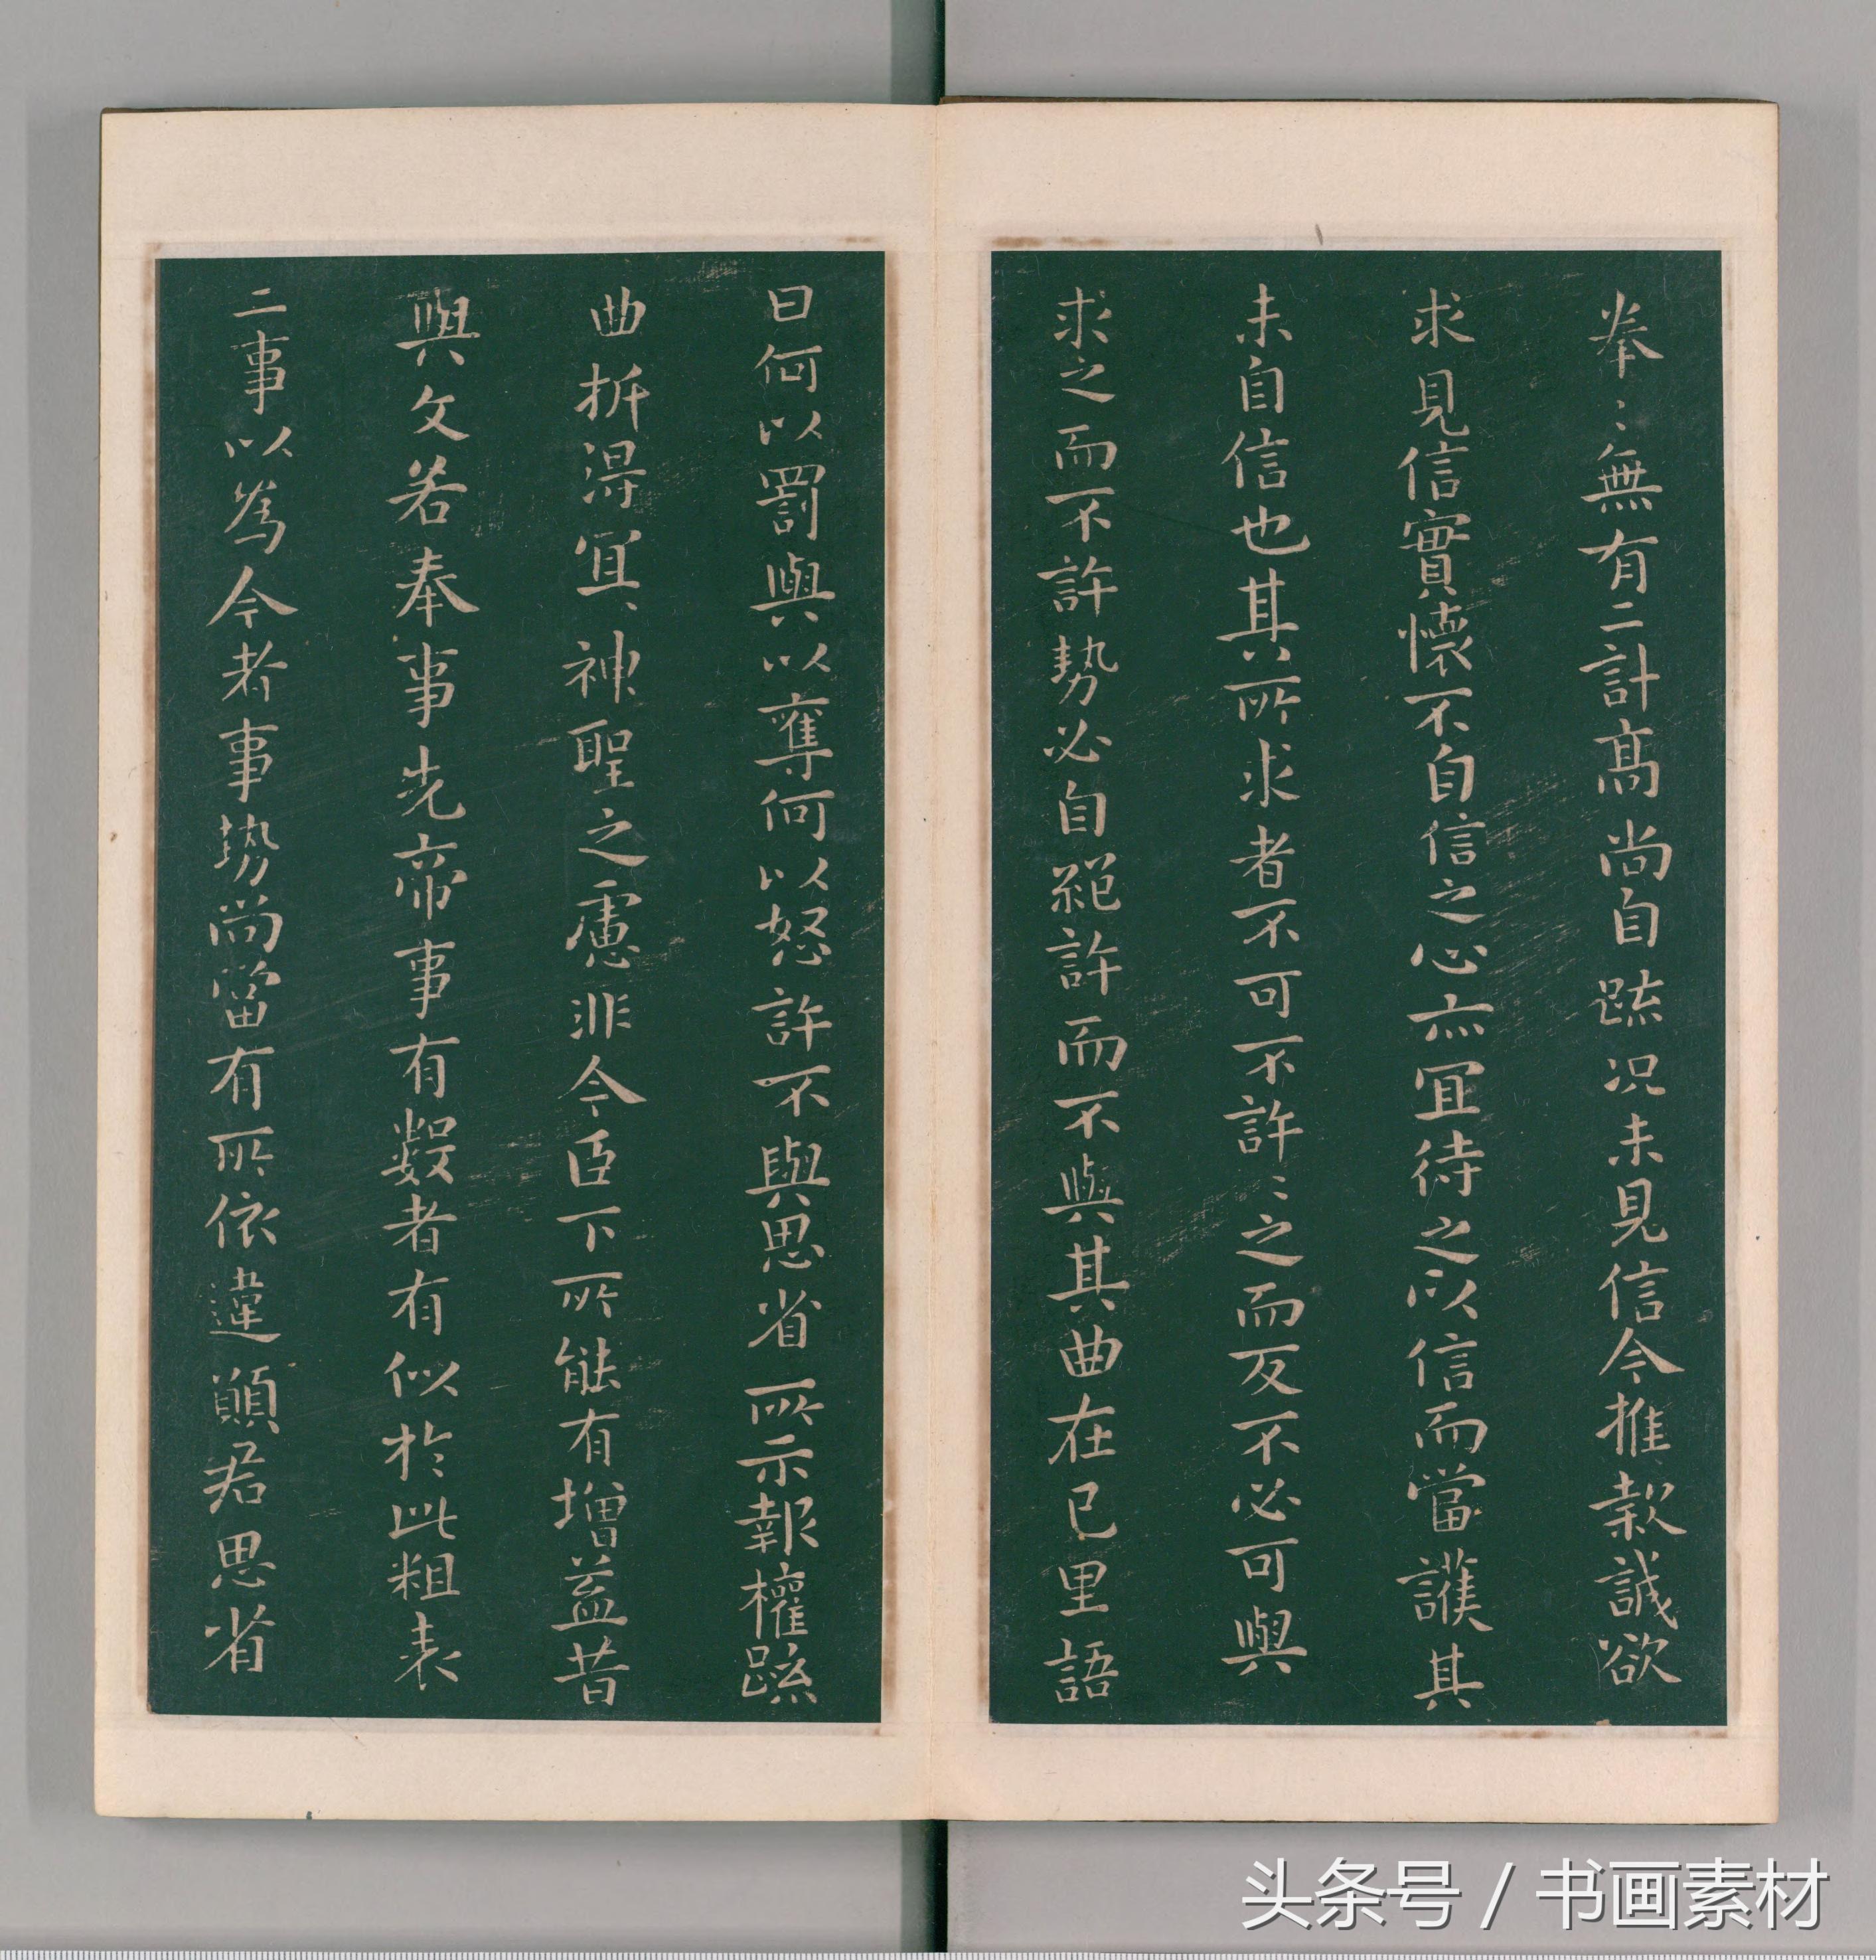 拳〻無有二計高尚自疏况未見信今推款誠欲
求見信實懷不自信之心亦宜待之以信而當護其
未自信也其所求者不可不許〻之而反不必可與
求之而不許勢必自絕許而不與其曲在己里語
曰何以罰與以奪何以怒許不與思省所示報權疏
曲折得宜宜神聖之慮非今臣下所能有增益昔
與文若奉事先帝事有數者有似於此粗表
二事以為今者事勢尚當有所依違願君思省
头条号 / 书画素材